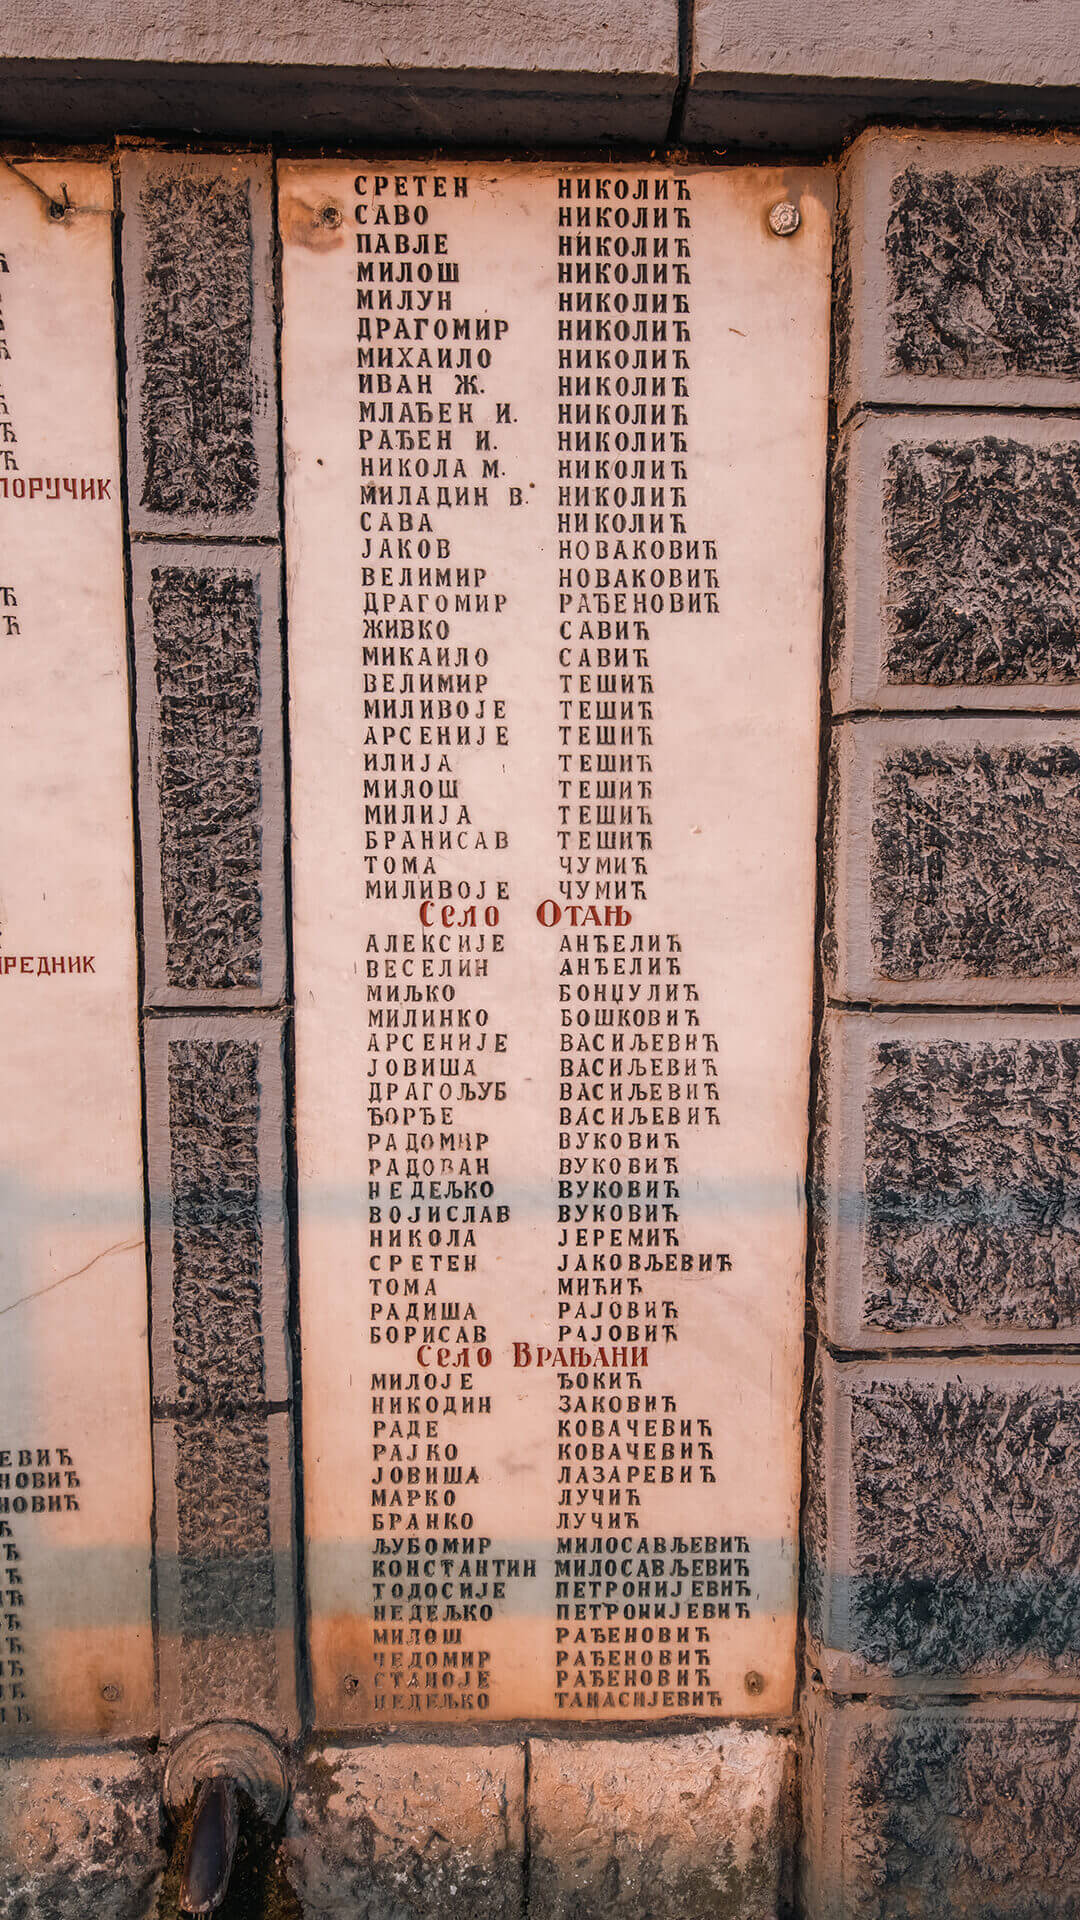 СРЕТЕН НИКОЛИЋ
САВО НИКОЛИЋ
ПАВЛЕ НИКОЛИЋ
МИЛОШ НИКОЛИЋ
МИЛУН НИКОЛИЋ
ДРАГОМИР НИКОЛИЋ
МИХАИЛО НИКОЛИЋ
ИВАН Ж. НИКОЛИЋ
МЛАЂЕН И. НИКОЛИЋ
РАЂЕН И. НИКОЛИЋ
НИКОЛА М. НИКОЛИЋ
МИЛАДИН В. НИКОЛИЋ
САВА НИКОЛИЋ
ЈАКОВ НОВАКОВИЋ
ВЕЛИМИР НОВАКОВИЋ
ДРАГОМИР РАЂЕНОВИЋ
ЖИВКО САВИЋ
МИКАИЛО САВИЋ
ВЕЛИМИР ТЕШИЋ
МИЛИВОЈЕ ТЕШИЋ
АРСЕНИЈЕ ТЕШИЋ
ИЛИЈА ТЕШИЋ
МИЛОШ ТЕШИЋ
МИЛИЈА ТЕШИЋ
БРАНИСАВ ТЕШИЋ
ТОМА ЧУМИЋ
МИЛИВОЈЕ ЧУМИЋ
СЕЛО ОТАЊ
АЛЕКСИЈЕ АНЂЕЛИЋ
ВЕСЕЛИН АНЂЕЛИЋ
МИЉКО БОНЏУЛИЋ
МИЛИНКО БОШКОВИЋ
АРСЕНИЈЕ ВАСИЉЕВИЋ
ЈОВИША ВАСИЉЕВИЋ
ДРАГОЉУБ ВАСИЉЕВИЋ
ЂОРЂЕ ВАСИЉЕВИЋ
РАДОМИР ВУКОВИЋ
РАДОВАН ВУКОВИЋ
НЕДЕЉКО ВУКОВИЋ
ВОЈИСЛАВ ВУКОВИЋ
НИКОЛА ЈЕРЕМИЋ
СРЕТЕН ЈАКОВЉЕВИЋ
ТОМА МИЋИЋ
РАДИША РАЈОВИЋ
БОРИСАВ РАЈОВИЋ
СЕЛО ВРАЊАНИ
МИЛОЈЕ ЂОКИЋ
НИКОДИН ЗАКОВИЋ
РАДЕ КОВАЧЕВИЋ
РАЈКО КОВАЧЕВИЋ
ЈОВИША ЛАЗАРЕВИЋ
МАРКО ЛУЧИЋ
БРАНКО ЛУЧИЋ
ЉУБОМИР МИЛОСАВЉЕВИЋ
КОНСТАНТИН МИЛОСАВЉЕВИЋ
ТОДОСИЈЕ ПЕТРОНИЈЕВИЋ
НЕДЕЉКО ПЕТРОНИЈЕВИЋ
МИЛОШ РАЂЕНОВИЋ
ЧЕДОМИР РАЂЕНОВИЋ
СТАНОЈЕ РАЂЕНОВИЋ
НЕДЕЉКО ТАНАСИЈЕВИЋ